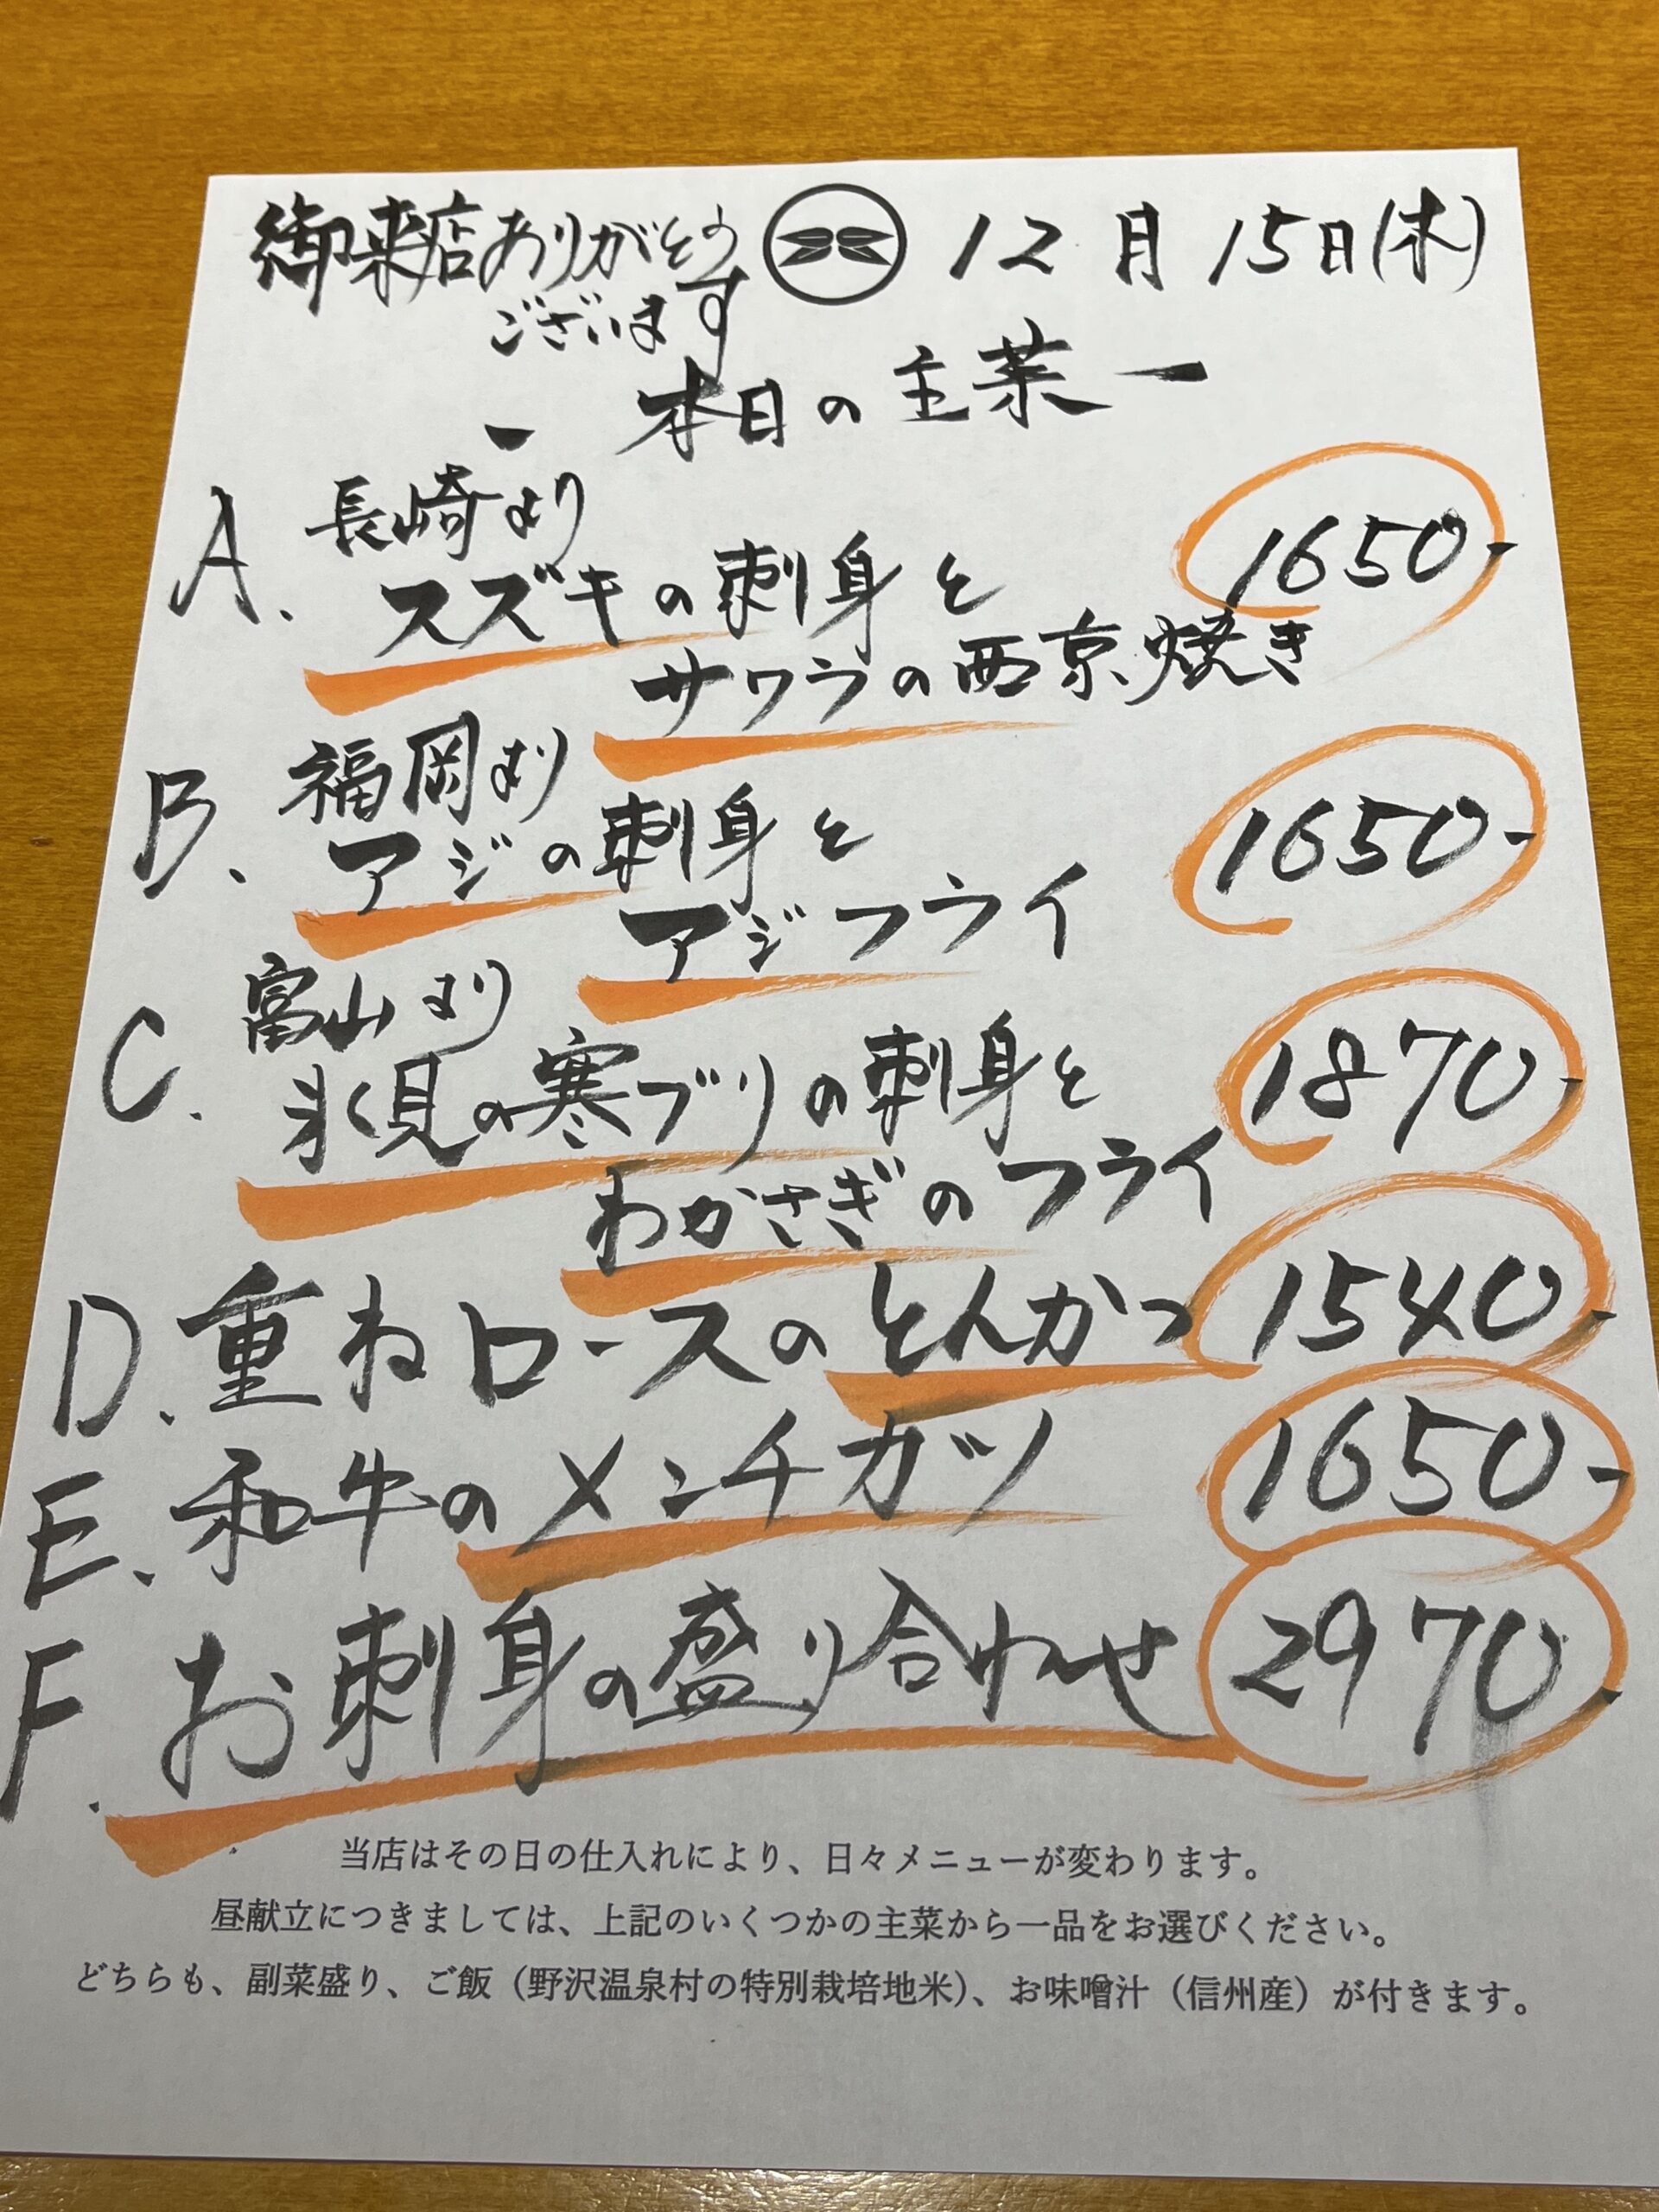 御来店ありがとう 12月15日(木)
ございます
- 本日の主菜 -
A. 長崎より
スズキの刺身と 1650-
サワラの西京焼き
B. 福岡より
アジの刺身と 1650-
アジフライ
C. 富山より
氷見の寒ブリの刺身と 1870-
わかさぎのフライ
D. 重ねロースのとんかつ 1540-
E. 和牛のメンチカツ 1650-
F. お刺身の盛り合わせ 2970-
当店はその日の仕入れにより、日々メニューが変わります。
昼献立につきましては、上記のいくつかの主菜から一品をお選びください。
どちらも、副菜盛り、ご飯（野沢温泉村の特別栽培地米）、お味噌汁（信州産）が付きます。